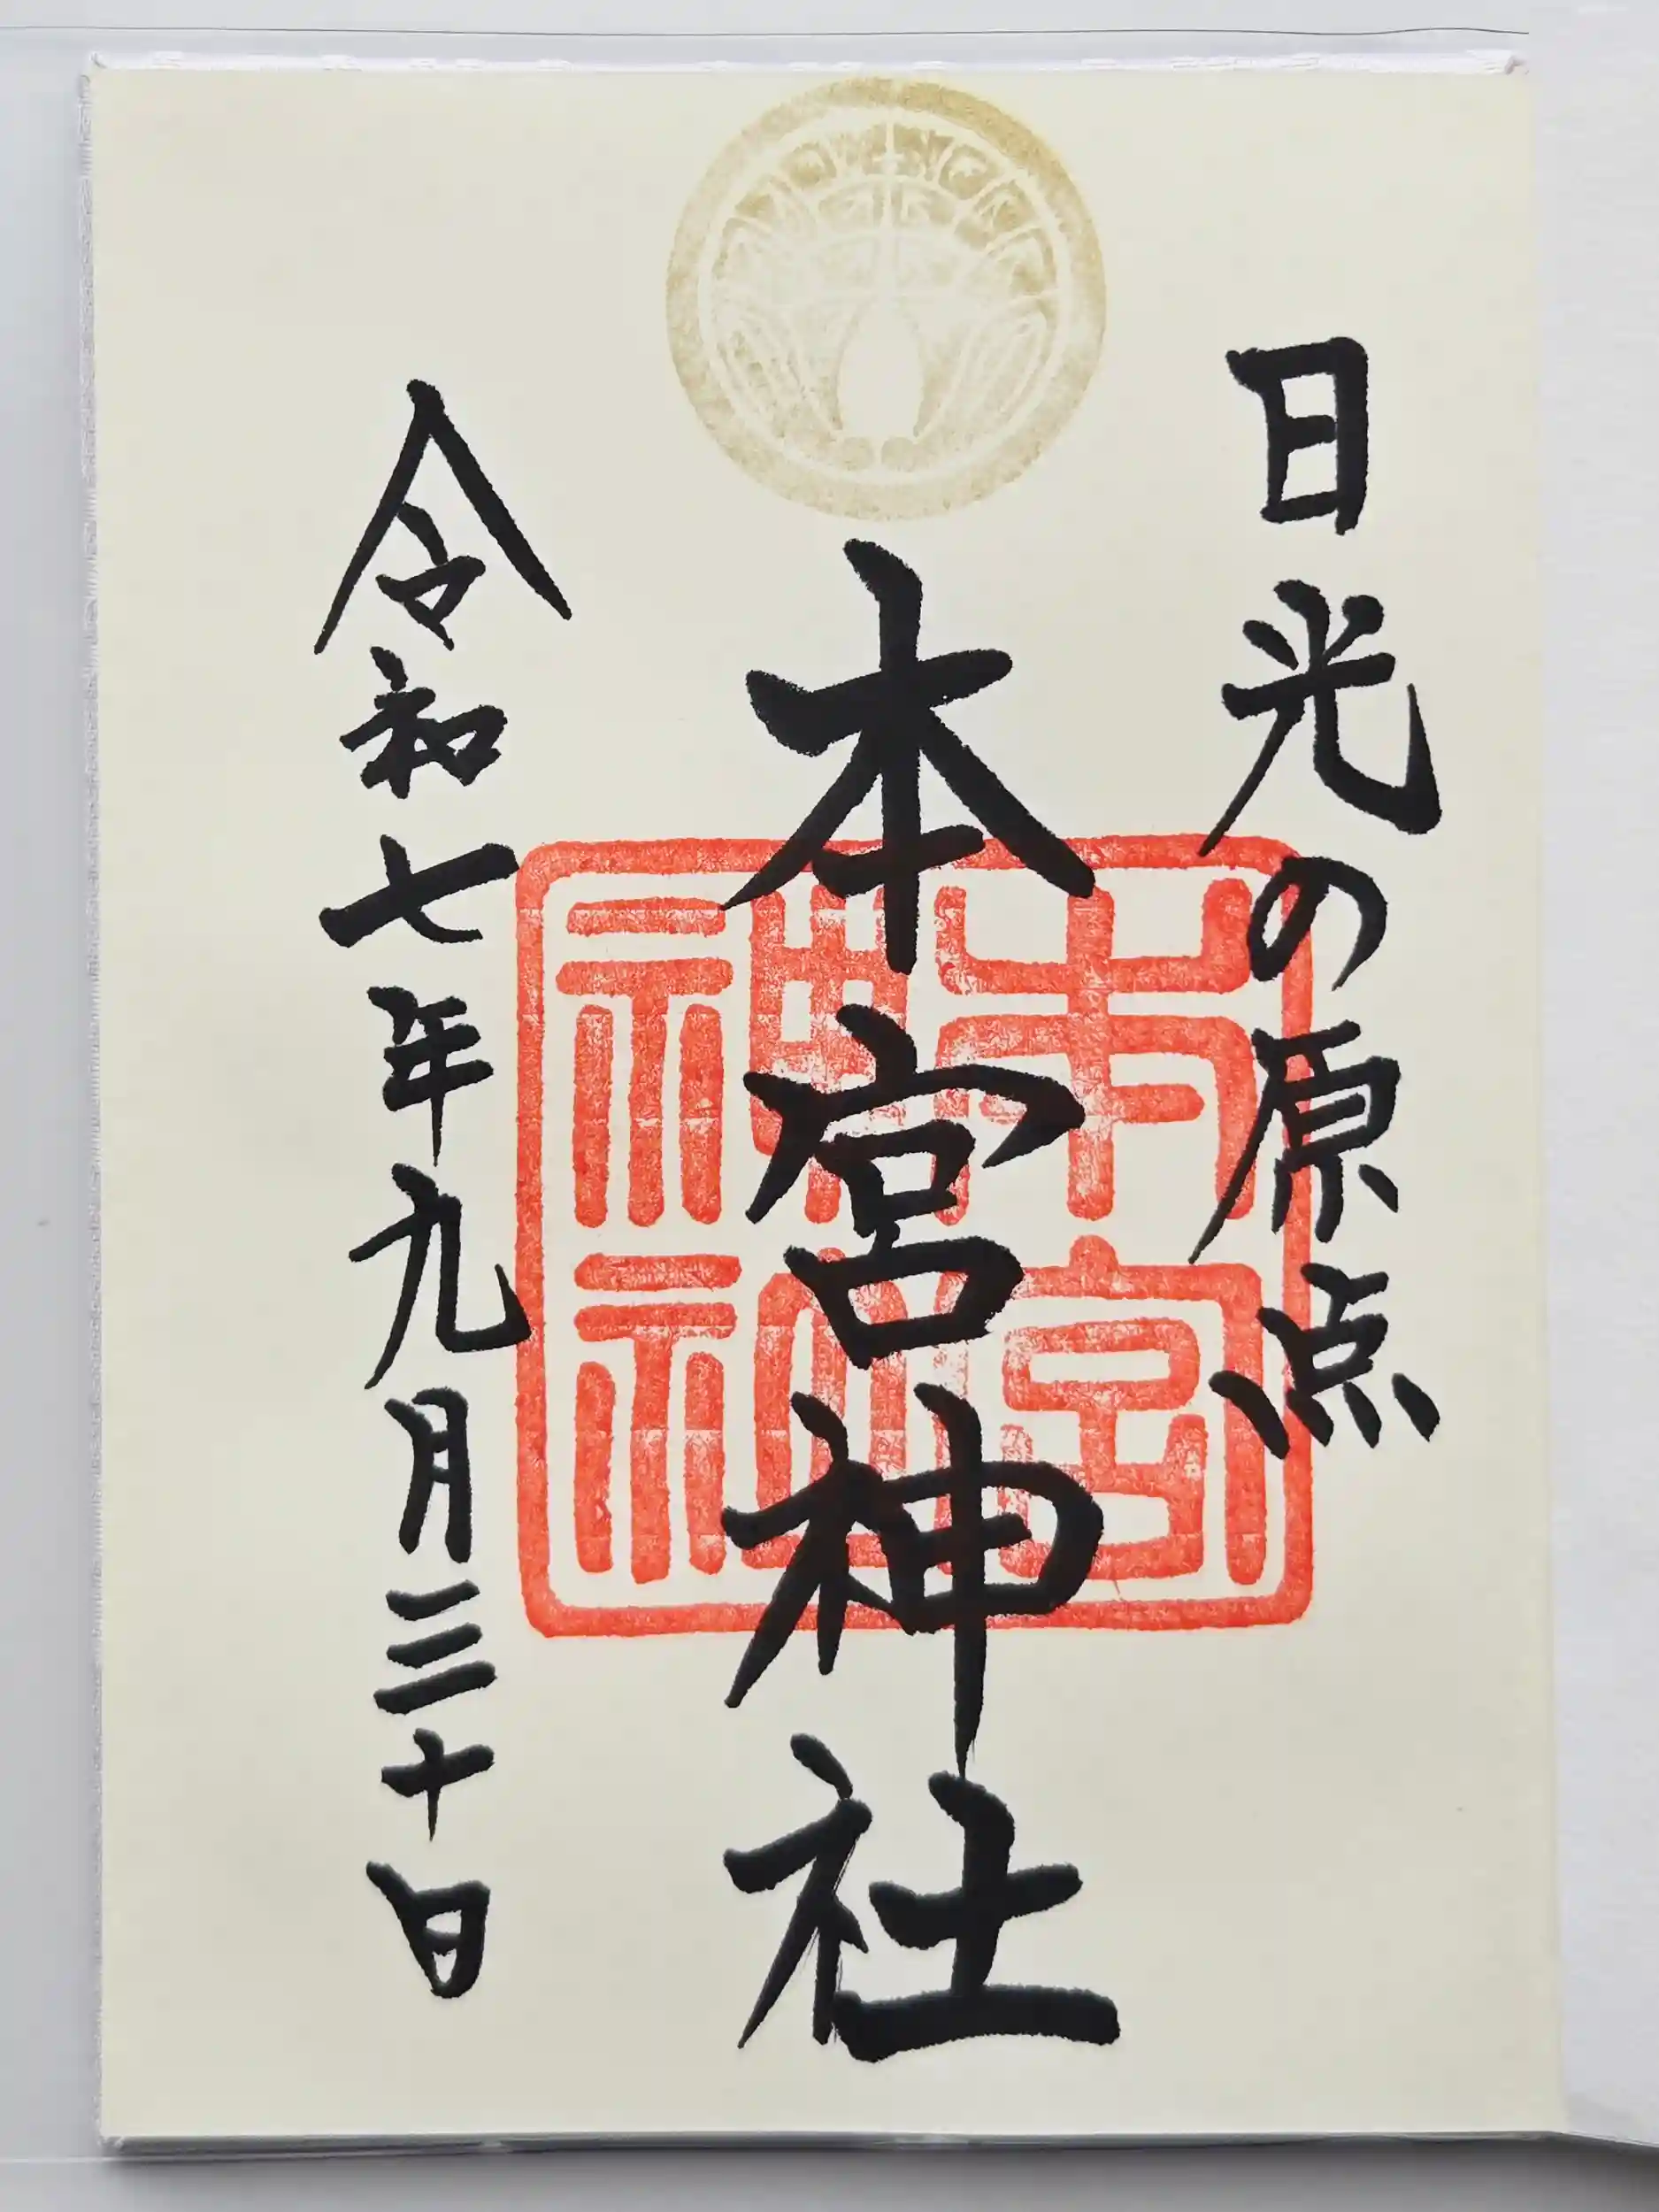 日光の原点
本宮神社
本宮神社
令和七年九月三十日